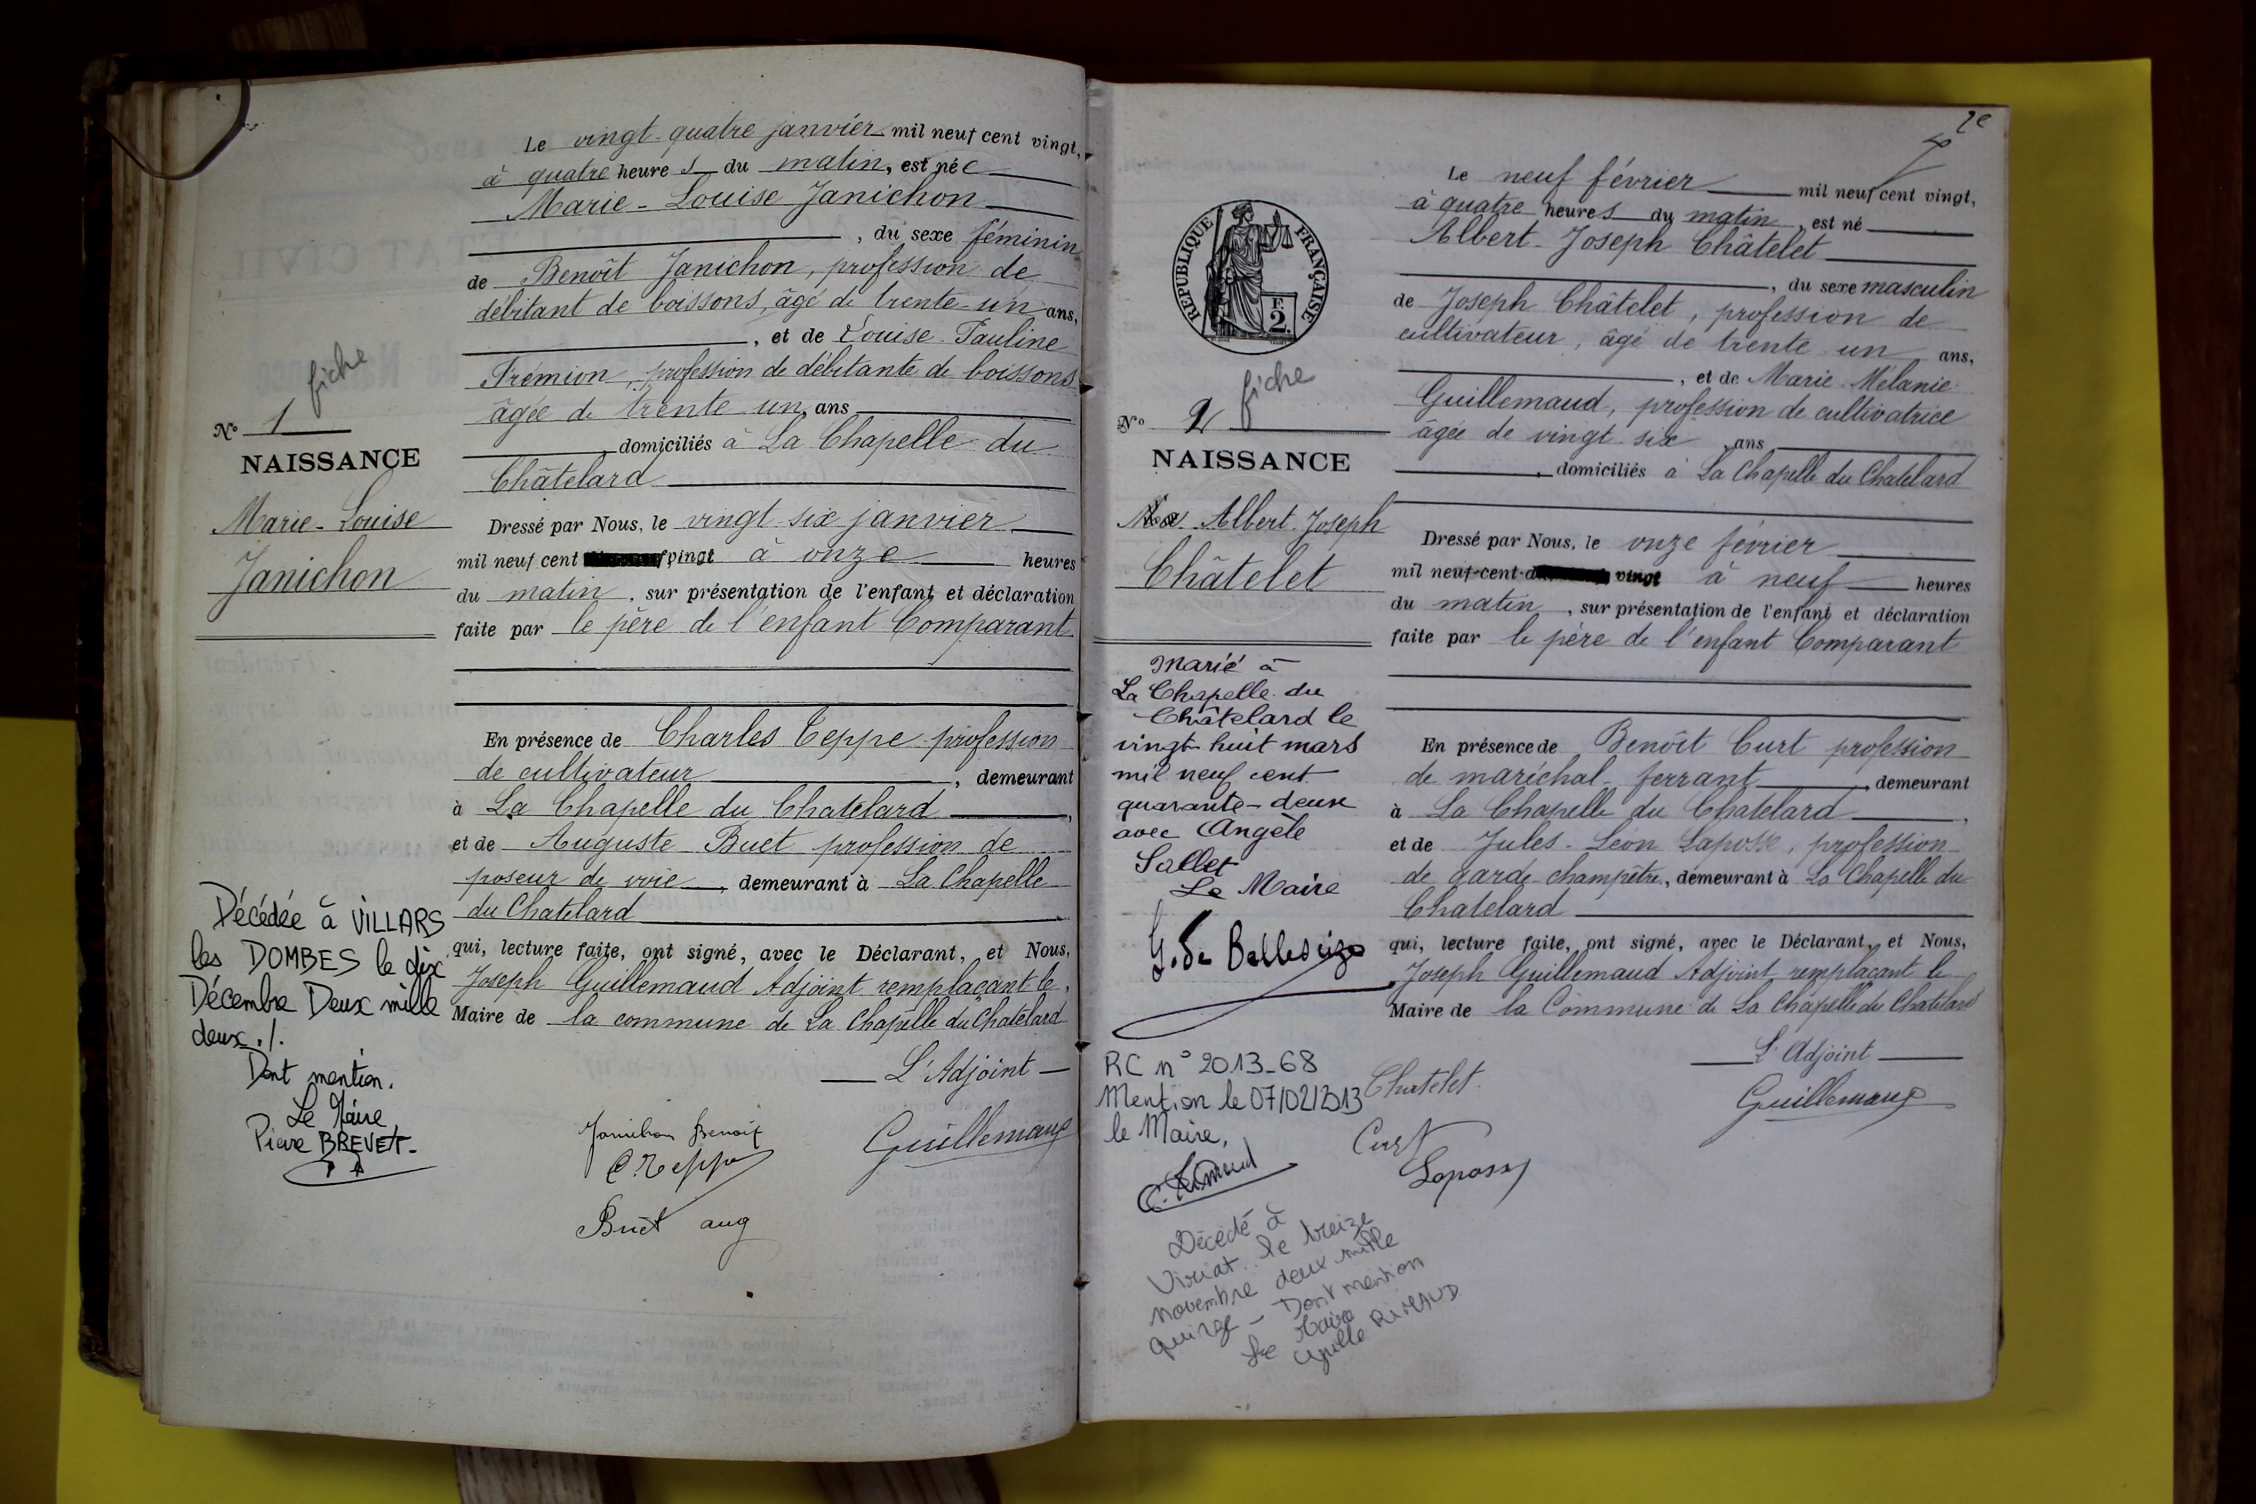 Le vingt-quatre janvier mil neuf cent vingt,
à quatre heures du matin, est née
Marie-Louise Janichon
, du sexe féminin
de Benoît Janichon, profession de
débitant de boissons, âgé de trente-un ans,
, et de Louise-Pauline
Frémion, profession de débitante de boissons
âgée de trente-un, ans
, domiciliés à La Chapelle du
Châtelard
Dressé par Nous, le vingt-six janvier
mil neuf cent vingt à onze heures
du matin, sur présentation de l'enfant et déclaration
faite par le père de l'enfant Comparant
En présence de Charles Teppe profession
de cultivateur, demeurant
à La Chapelle du Chatelard,
et de Auguste Buet profession de
poseur de voie, demeurant à La Chapelle
du Chatelard
qui, lecture faite, ont signé, avec le Déclarant, et Nous,
Joseph Guillemaud Adjoint remplaçant le,
Maire de la commune de La Chapelle du Châtelard
L'Adjoint
Janichon Benoit
Guillemaud
C. Teppe
Buet aug
fiche
N° 1
NAISSANCE
Marie-Louise
Janichon
Décédée à VILLARS
les DOMBES le dix
Décembre Deux mille
deux ./.
Dont mention.
Le Maire
Pierre BREVET
2e
Le neuf février mil neuf cent vingt,
à quatre heures du matin, est né
Albert-Joseph Châtelet
, du sexe masculin
de Joseph Châtelet, profession de
cultivateur, âgé de trente-un ans,
, et de Marie-Mélanie
Guillemaud, profession de cultivatrice
âgée de vingt-six, ans
, domiciliés à La Chapelle du Chatelard
Dressé par Nous, le onze février
mil neuf-cent-d vingt à neuf heures
du matin, sur présentation de l'enfant et déclaration
faite par le père de l'enfant Comparant
En présence de Benoît Curt profession
de maréchal-ferrant, demeurant
à La Chapelle du Chatelard,
et de Jules-Léon Laposse, profession
de garde-champêtre, demeurant à La Chapelle du
Chatelard
qui, lecture faite, ont signé, avec le Déclarant, et Nous,
Joseph Guillemaud Adjoint remplaçant le
Maire de la Commune de La Chapelle du Chatelard
L'Adjoint
Chatelet
Guillemaud
Curt
Laposse
RÉPUBLIQUE FRANÇAISE
F.
2.
fiche
N° 2
NAISSANCE
Albert-Joseph
Châtelet
Marié à
La Chapelle du
Châtelard le
vingt-huit mars
mil neuf cent
quarante-deux
avec Angèle
Sallet
Le Maire
G. de Bellescize
RC n° 2013-68
Mention le 07/02/2013
le Maire,
C. Rimaud
Décédé à
Viriat le treize
novembre deux mille
quinze - Dont mention
Le Maire
Cyrille RIMAUD